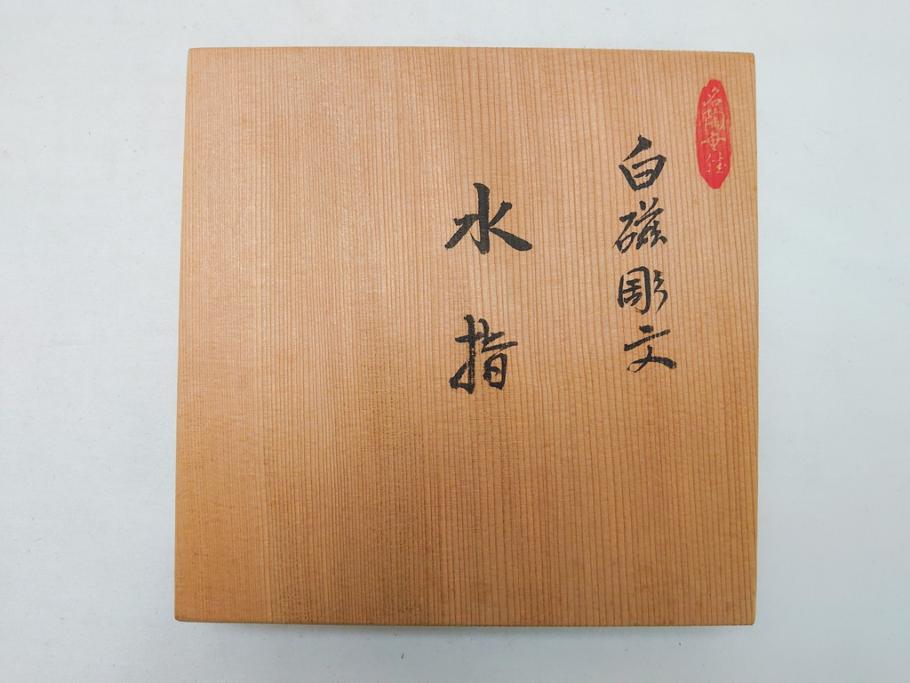 白磁彫文
水指